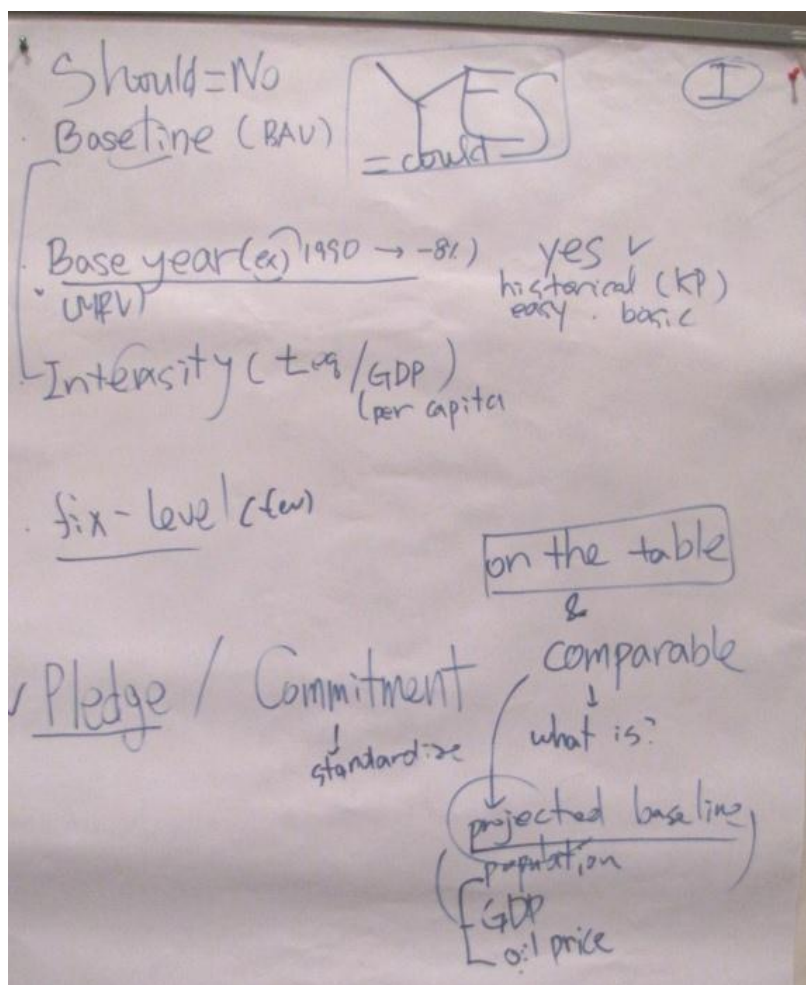 Should=No
YES
=could
I
Baseline (BAU)
Base year (ex) 1990 → -8%)
(MRV)
yes ✓
historical (KP)
easy. basic
Intensity (t eq/GDP)
(per capita
fix-level (few)
on the table
&
comparable
↓
what is?
✓ Pledge / Commitment
↓
standardize
projected baseline
population
GDP
oil price